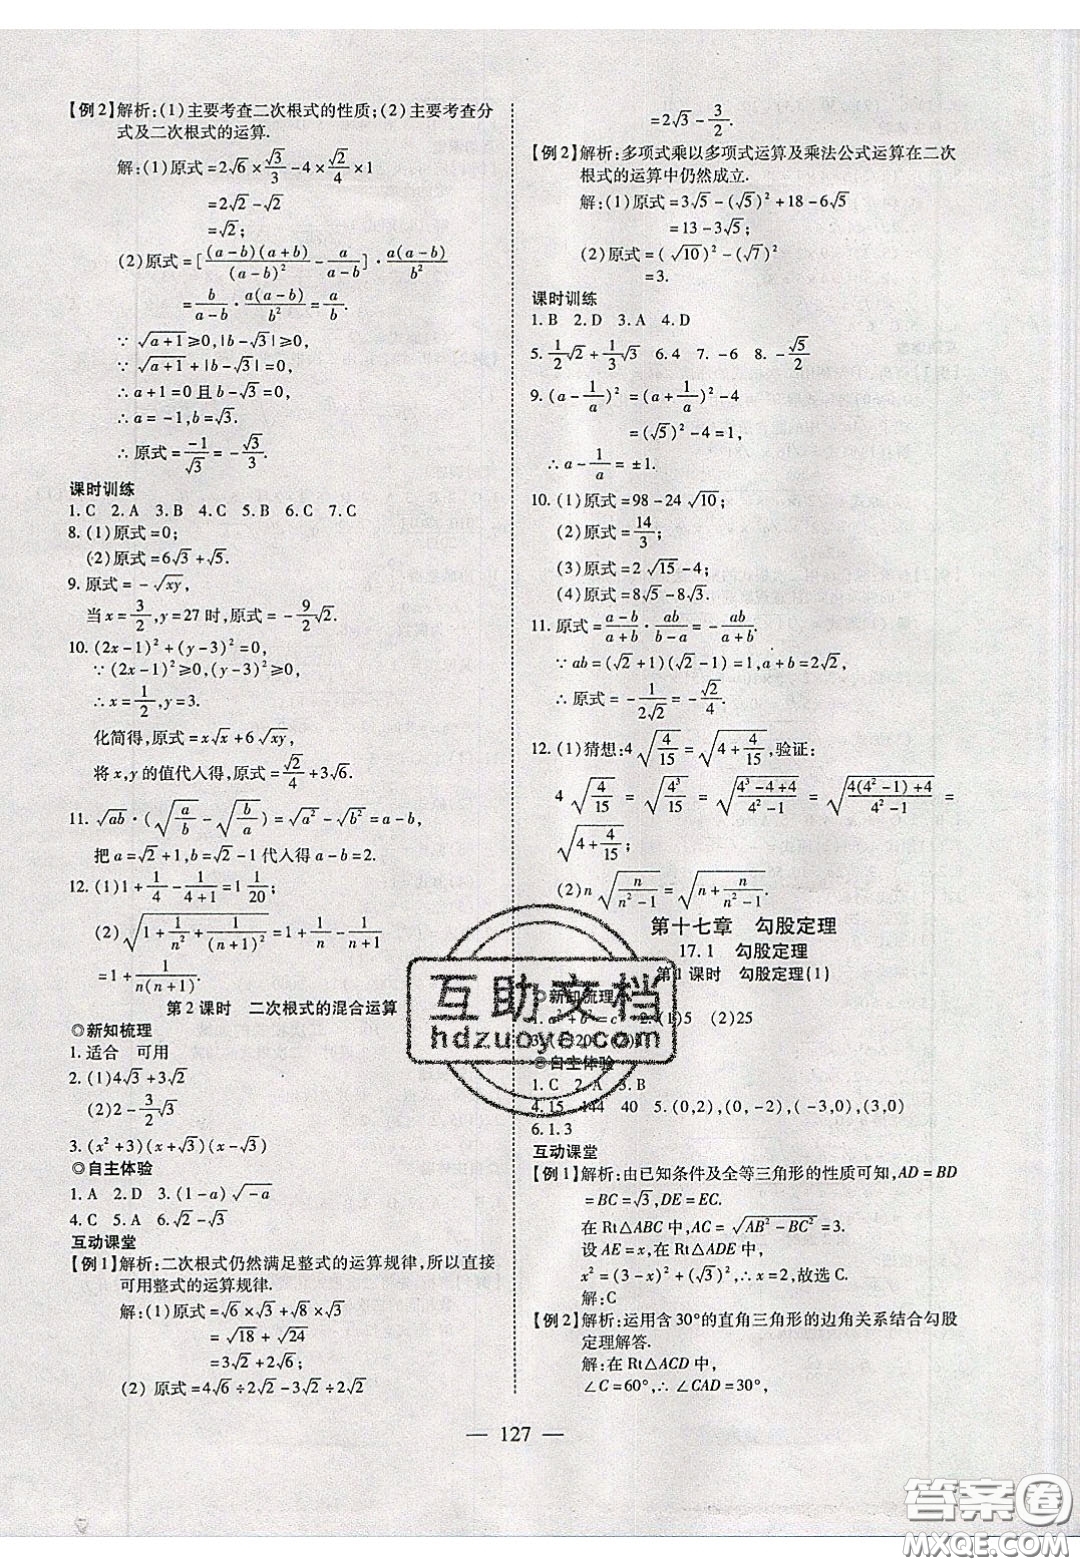 【例2】解析:(1)主要考查二次根式的性质;(2)主要考查分
式及二次根式的运算.
解:(1)原式=2√6×√3/3-4×√2/4×1
=2√2-√2
=√2;
(2)原式=[(a-b)(a+b)/(a-b)²-a/(a-b)]·a(a-b)/b²
=b/(a-b)·a(a-b)/b²=a/b.
∵√(a+1)≥0,|b-√3|≥0,
∵√(a+1)+|b-√3|=0,
∴a+1=0且b-√3=0,
∴a=-1,b=√3.
∴原式=-1/√3=-√3/3.
课时训练
1.C 2.A 3.B 4.C 5.B 6.C 7.C
8.(1)原式=0;
(2)原式=6√3+√5.
9.原式=-√(xy),
当x=3/2,y=27时,原式=-9/2√2.
10.(2x-1)²+(y-3)²=0,
∵(2x-1)²≥0,(y-3)²≥0,
∴x=1/2,y=3.
化简得,原式=x√x+6√(xy),
将x,y的值代人得,原式=√2/4+3√6.
11.√(ab)·(√(a/b)-√(b/a))=√a²-√b²=a-b,
把a=√2+1,b=√2-1代人得a-b=2.
12.(1)1+1/4-1/(4+1)=1 1/20;
(2)√(1+1/n²+1/(n+1)²)=1+1/n-1/(n+1)
=1+1/(n(n+1)).
第2课时 二次根式的混合运算
◎新知梳理
1.适合 可用
2.(1)4√3+3√2
(2)2-3/2√3
3.(x²+3)(x+√3)(x-√3)
◎自主体验
1.A 2.D 3.(1-a)√(-a)
4.C 5.A 6.√2-√3
互动课堂
【例1】解析:二次根式仍然满足整式的运算规律,所以直接
可用整式的运算规律.
解:(1)原式=√6×√3+√8×√3
=√18+√24
=3√2+2√6;
(2)原式=4√6÷2√2-3√2÷2√2
=2√3-3/2.
【例2】解析:多项式乘以多项式运算及乘法公式运算在二次
根式的运算中仍然成立.
解:(1)原式=3√5-(√5)²+18-6√5
=13-3√5;
(2)原式=(√10)²-(√7)²
=3.
课时训练
1.B 2.D 3.A 4.D
5.1/2√2+1/3√3 6.4. 7.-6 8.-√5/2
9.(a-1/a)²=(a+1/a)²-4
=(√5)²-4=1,
∴a-1/a=±1.
10.(1)原式=98-24√10;
(2)原式=14/3;
(3)原式=2√15-4;
(4)原式=8√5-8√3.
11.原式=(a-b)/(a+b)·ab/(b-a)=-ab/(a+b).
∵ab=(√2+1)(√2-1)=1,a+b=2√2,
∴原式=-1/(2√2)=-√2/4.
12.(1)猜想:4√(4/15)=√(4+4/15),验证:
4√(4/15)=√(4³/15)=√((4³-4+4)/(4²-1))=√((4(4²-1)+4)/(4²-1))=
√(4+4/15);
(2)n√(n/(n²-1))=√(n+n/(n²-1)).
第十七章 勾股定理
17.1 勾股定理
第1课时 勾股定理(1)
◎新知梳理
1.a²+b²=c² 2.(1)5 (2)25
◎自主体验
1.C 2.A 3.B
4.15 144 40 5.(0,2),(0,-2),(-3,0),(3,0)
6.1.3
互动课堂
【例1】解析:由已知条件及全等三角形的性质可知,AD=BD
=BC=√3,DE=EC.
在Rt△ABC中,AC=√(AB²-BC²)=3.
设AE=x,在Rt△ADE中,
x²=(3-x)²+(√3)²,x=2,故选C.
解:C
【例2】解析:运用含30°的直角三角形的边角关系结合勾股
定理解答.
解:在Rt△ACD中,
∠C=60°,∴∠CAD=30°,
— 127 —
互助文档
hdzuoye.com
答案圈
MXQE.COM